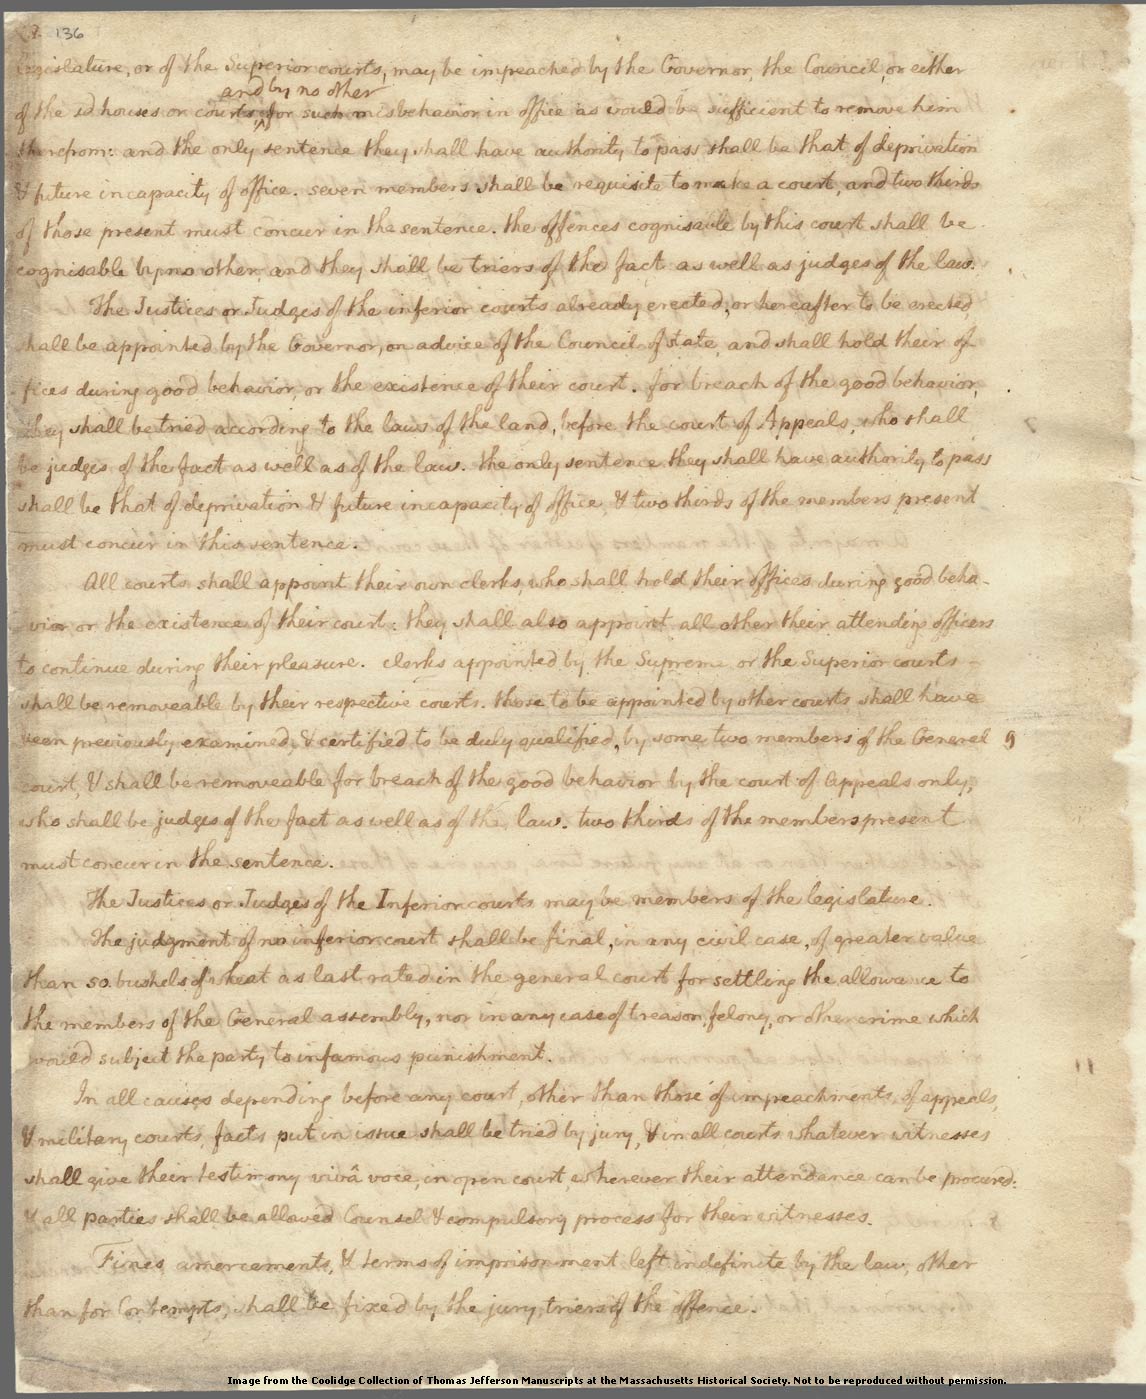 136
legislature, or of the Superior courts, may be impeached by the Governor, the Council, or either
and by no other
of the sd houses or courts, for such misbehavior in office as would be sufficient to remove him
therefrom: and the only sentence they shall have authority to pass shall be that of deprivation
& future incapacity of office. seven members shall be requisite to make a court, and two thirds
of those present must concur in the sentence. the offences cognisable by this court shall be
cognisable by no other, and they shall be triers of the fact as well as judges of the law.
The Justices or Judges of the inferior courts already erected, or hereafter to be erected
shall be appointed by the Governor, on advice of the Council of state, and shall hold their of
fices during good behavior, or the existence of their court. for breach of the good behavior,
they shall be tried according to the laws of the land, before the court of Appeals, who shall
be judges of the fact as well as of the law. the only sentence they shall have authority to pass
shall be that of deprivation & future incapacity of office, & two thirds of the members present
must concur in this sentence.
All courts shall appoint their own clerks, who shall hold their offices during good beha-
vior or the existence of their court: they shall also appoint all other their attending officers
to continue during their pleasure. clerks appointed by the Supreme or the Superior courts
shall be removeable by their respective courts. those to be appointed by other courts shall have
been previously examined, & certified to be duly qualified, by some two members of the General
court, & shall be removeable for breach of the good behavior by the court of Appeals only,
who shall be judges of the fact as well as of the law. two thirds of the members present
must concur in the sentence.
The Justices or Judges of the Inferior courts may be members of the legislature.
The judgment of no inferior court shall be final, in any civil case, of greater value
than 50. bushels of wheat as last rated in the general court for settling the allowance to
the members of the General assembly, nor in any case of treason, felony, or other crime which
would subject the party to infamous punishment.
In all causes depending before any court, other than those of impeachments, of appeals,
& military courts, facts put in issue shall be tried by jury, & in all courts whatever witnesses
shall give their testimony vivâ voce, in open court, wherever their attendance can be procured:
& all parties shall be allowed Counsel & compulsory process for their witnesses.
Fines, amercements, & terms of imprisonment left indefinite by the law, other
than for Contempts, shall be fixed by the jury, triers of the offence.
Image from the Coolidge Collection of Thomas Jefferson Manuscripts at the Massachusetts Historical Society. Not to be reproduced without permission.